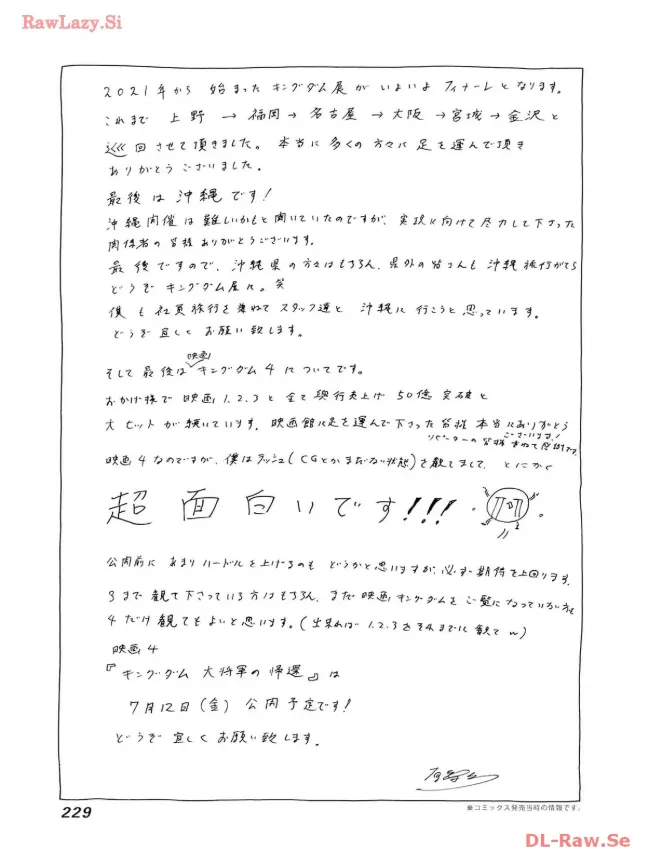 RawLazy.Si
2021年から 始まった キングダム展が いよいよ フィナーレと なります。
これまで 上野 → 福岡 → 名古屋 → 大阪 → 宮城 → 金沢と
巡回させて頂きました。本当に多くの方々に足を運んで頂き
ありがとうございました。
最後は沖縄です!
沖縄開催は難しいかもと聞いていたのですが、実現に向けて尽力して下さった
関係者の皆様ありがとうございます。
最後ですので、沖縄県の方々はもちろん、県外の皆さんも沖縄旅行がてら
どうぞ キングダム展に。笑
僕も社員旅行を兼ねてスタッフ達と 沖縄に行こうと思っています。
どうぞ宜しくお願い致します。
そして最後は映画キングダム4についてです。
おかげ様で映画1.2.3と全て興行売上げ50億突破と
大ヒットが続いています。映画館に足を運んで下さった皆様本当にありがとうございます!
リピーターの皆様重ねて感謝です。
映画4なのですが、僕はラッシュ(CGとかまだない状態)を観てまして、とにかく
超面白いです!!!
公開前にあまりハードルを上げるのもどうかと思いますが、必ず期待を上回ります。
3まで観て下さっている方はもちろん、まだ映画キングダムをご覧になっていない方も
4だけ観てもよいと思います。(出来れば1.2.3をそれまでに観てw)
映画4
『キングダム 大将軍の帰還』は
7月12日(金)公開予定です!
どうぞ宜しくお願い致します。
229
※コミックス発売当時の情報です。
DL-Raw.Se